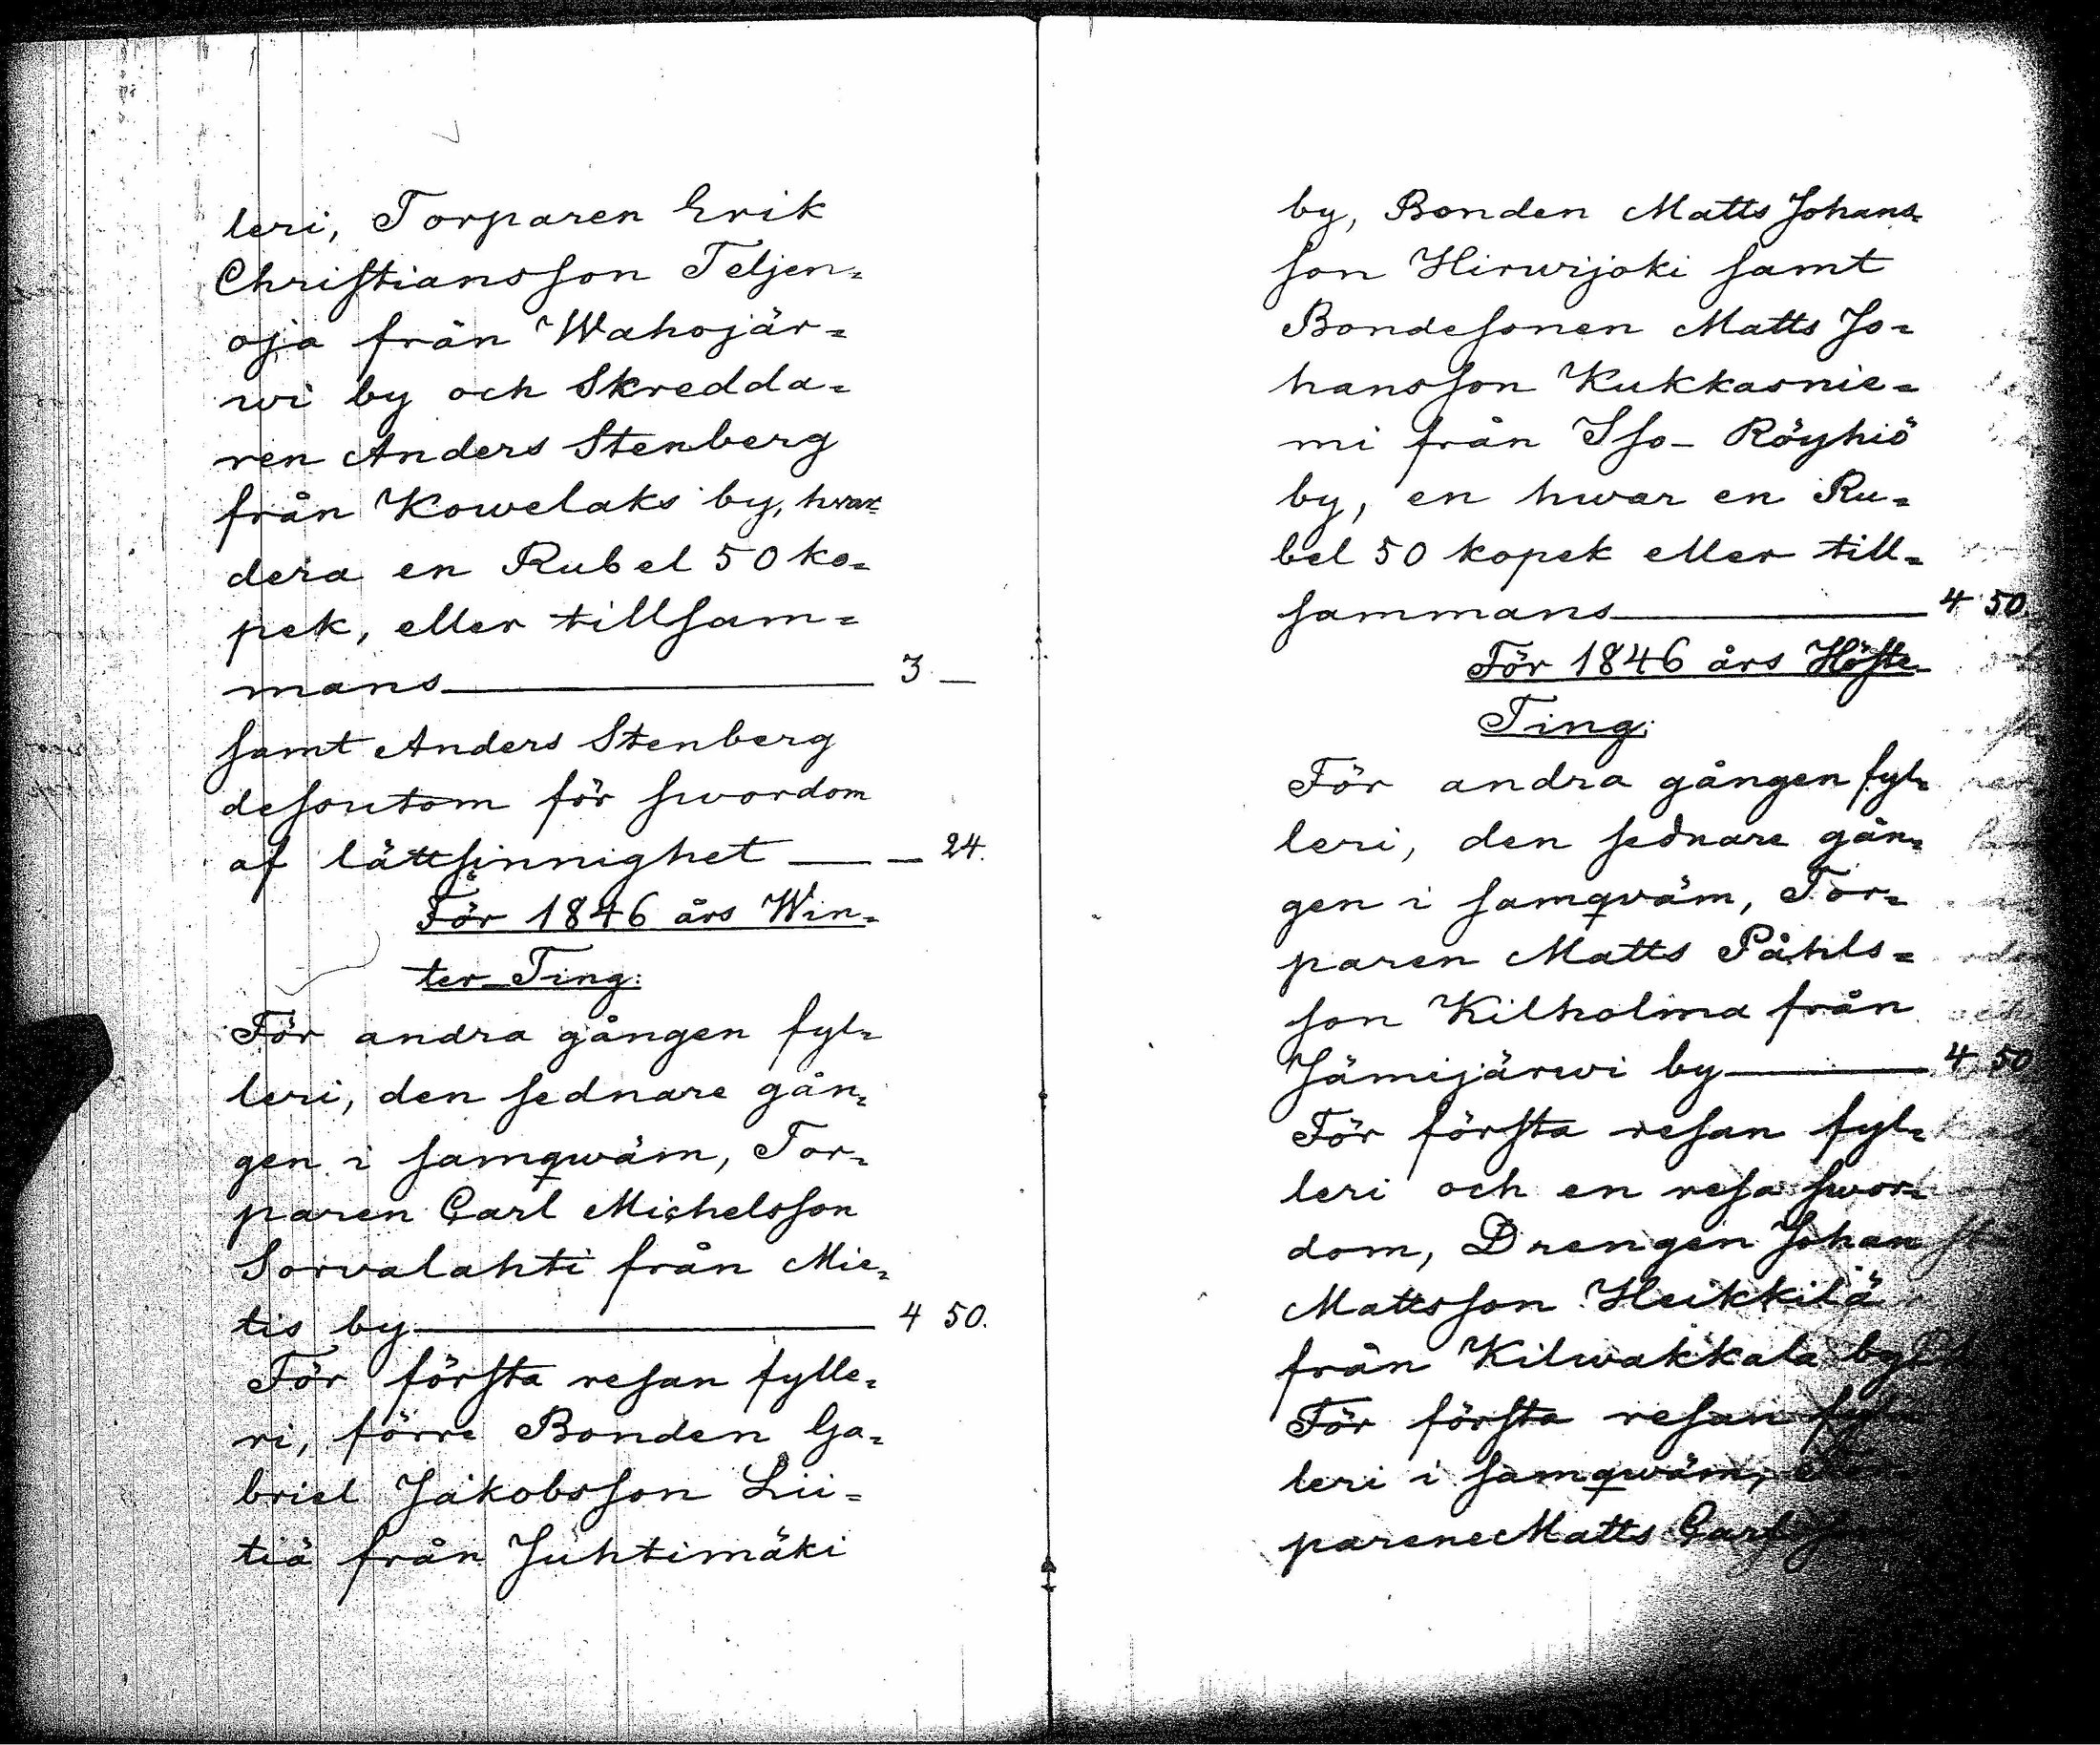 leri, Torparen Erik
Christiansson Teljen=
oja från Wahojär=
wi by och Skredda=
ren Anders Stenberg
från Kowelaks by, hvar=
dera en Rubel 50 ko=
pek, eller tillsam=
mans 3 —
samt Anders Stenberg
desoutom för swordom
af lättsinnighet — 24.
För 1846 års Win=
ter-Ting:
För andra gången fyl=
leri, den sednare gån=
gen i samqwäm, Tor=
paren Carl Michelsson
Sorvalahti från Mie=
tis by 4 50.
För första resan fylle=
ri, förre Bonden Ga=
briel Jakobsson Lii=
tiä från Juhtimäki
by, Bonden Matts Johans=
son Hirwijoki samt
Bondesonen Matts Jo=
hansson Kukkasnie=
mi från Iso-Röyhiö
by, en hwar en Ru=
bel 50 kopek eller till=
sammans 4 50.
För 1846 års Höste-
Ting:
För andra gången fyl=
leri, den sednare gån=
gen i samqväm, Tor=
paren Matts Påhls=
son Kilholma från
Jämijärwi by 4 50
För första resan fyl=
leri och en resa swor=
dom, Drengen Johan
Mattsson Heikkilä
från Kilwakkala by
För första resan fyl=
leri i samqwäm,
parene Matts Carls